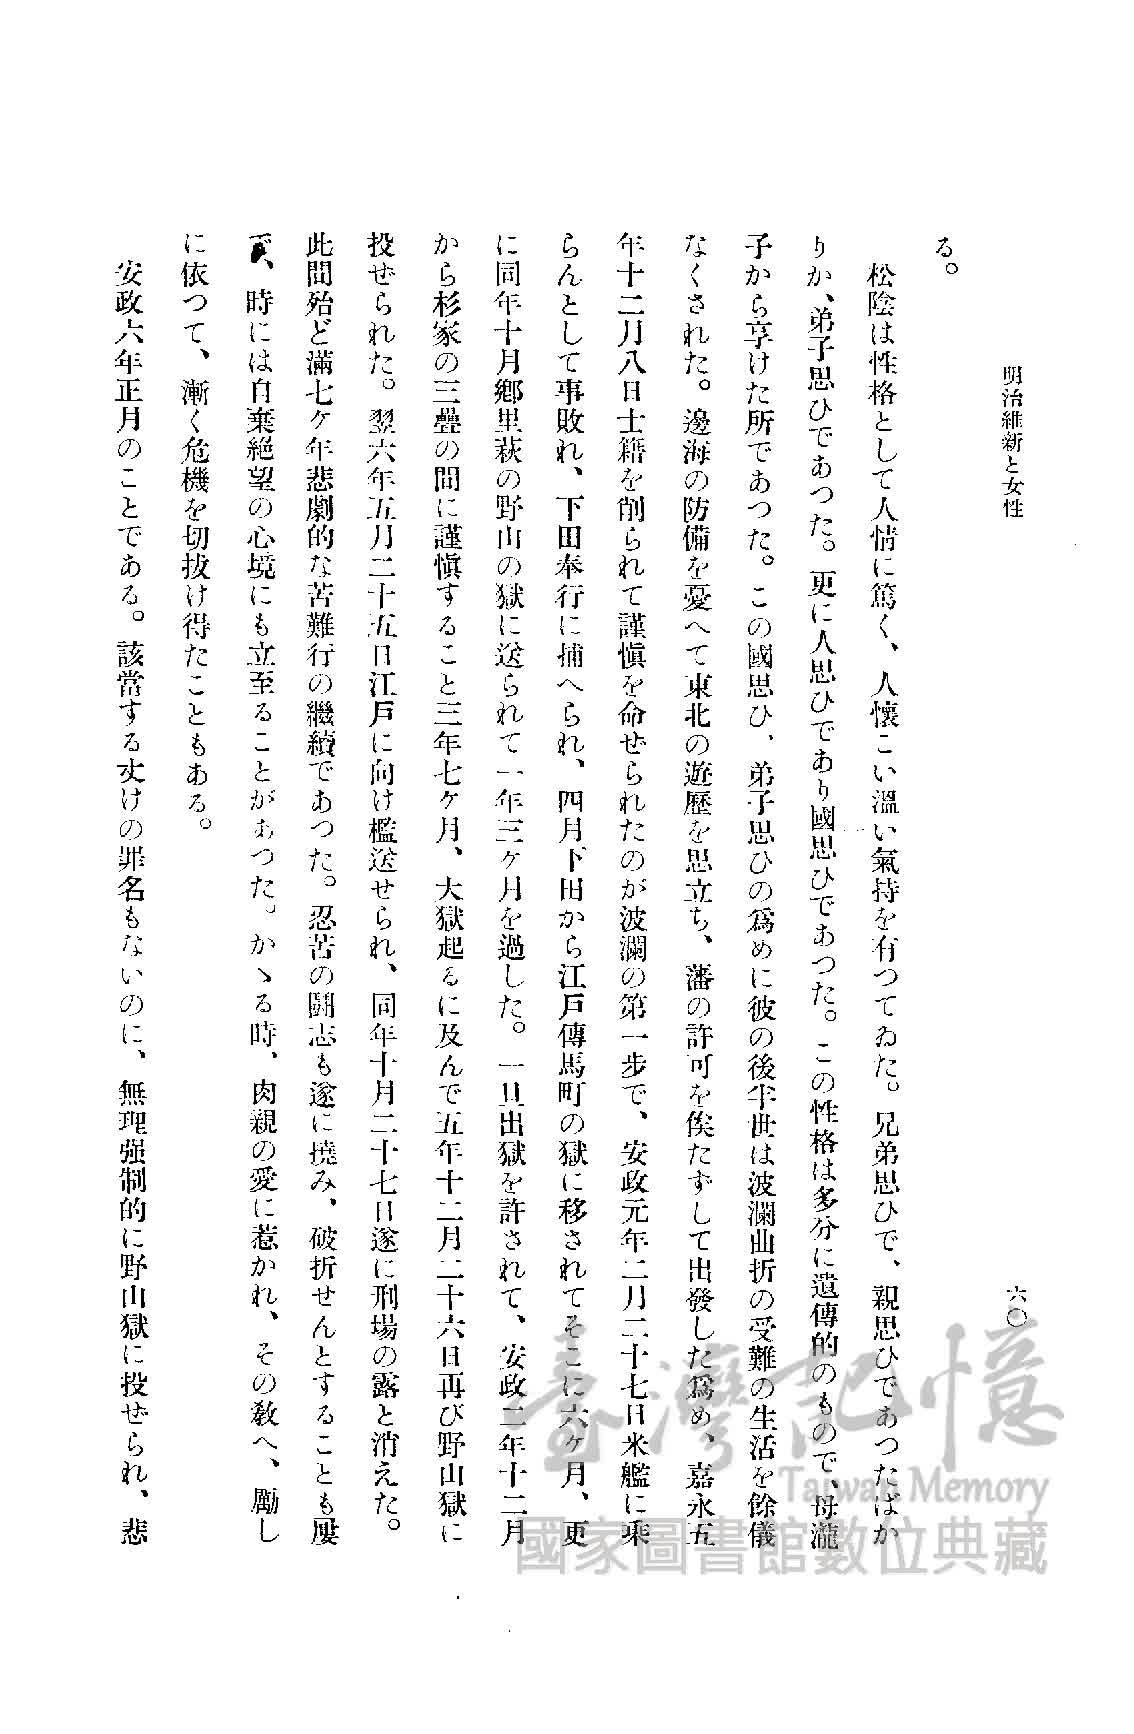 明治維新と女性
六〇
る。
松陰は性格として人情に篤く、人懷こい溫い氣持を有つてゐた。兄弟思ひで、親思ひであつたばか
りか、弟子思ひであつた。更に人思ひであり國思ひであつた。この性格は多分に遺傳的のもので、母瀧
子から享けた所であつた。この國思ひ、弟子思ひの爲めに彼の後半世は波瀾曲折の受難の生活を餘儀
なくされた。邊海の防備を憂へて東北の遊歷を思立ち、藩の許可を俟たずして出發した爲め、嘉永五
年十二月八日士籍を削られて謹愼を命ぜられたのが波瀾の第一步で、安政元年二月二十七日米艦に乘
らんとして事敗れ、下田奉行に捕へられ、四月下田から江戶傳馬町の獄に移されてそこに六ヶ月、更
に同年十月鄕里萩の野山の獄に送られて一年三ヶ月を過した。一旦出獄を許されて、安政二年十二月
から杉家の三疊の間に謹愼すること三年七ケ月、大獄起るに及んで五年十二月二十六日再び野山獄に
投ぜられた。翌六年五月二十五日江戶に向け檻送せられ、同年十月二十七日遂に刑場の露と消えた。
此間殆ど滿七ケ年悲劇的な苦難行の繼續であつた。忍苦の鬪志も遂に撓み、破折せんとすることも屢
〻、時には自棄絕望の心境にも立至ることがあつた。かゝる時、肉親の愛に惹かれ、その敎へ、勵し
に依つて、漸く危機を切拔け得たこともある。
安政六年正月のことである。該當する丈けの罪名もないのに、無理强制的に野山獄に投ぜられ、悲
臺灣記憶
Taiwan Memory
國家圖書館數位典藏